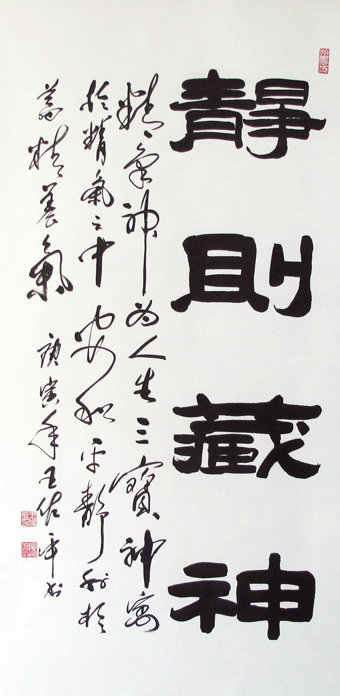 靜則藏神
精氣神為人生三寶神寓
於精氣之中安和平靜利於
蓄精養氣
庚寅年王佐平书